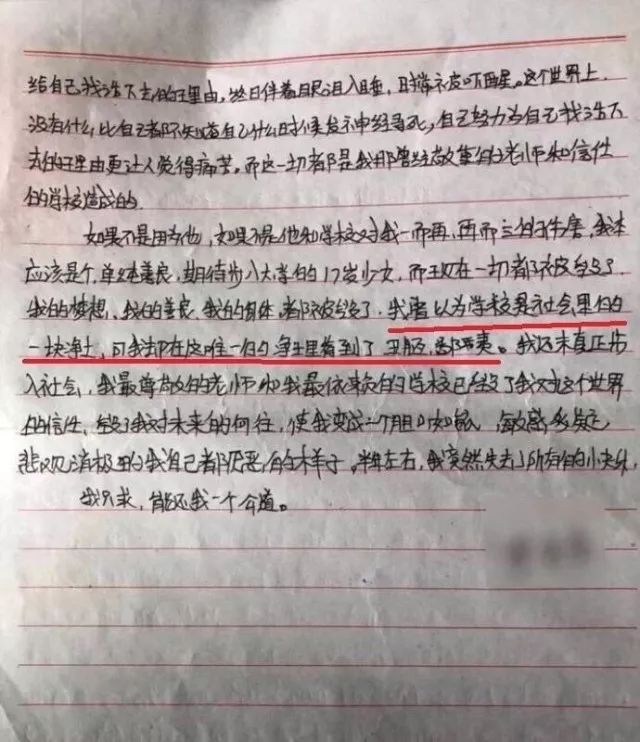 给自己找活下去的理由，终日伴着眼泪入睡，时常被皮吓醒。这个世界上
没有什么比自己都不知道自己什么时候发神经寻死，自己努力为自己找活下
去的理由更让人觉得痛苦。而这一切都是我那曾经敬重的老师和信任
的学校造成的
如果不是因为他，如果不是他和学校对我一而再，再而三的伤害，我本
应该是个单纯善良，期待步入大学的17岁少女，而现在一切都被毁了
我的梦想、我的善良、我的身体，都被毁了，我曾以为学校是社会里的
一块净土，可我却在这唯一的净土里看到了丑陋，龌龊。我还未真正步
入社会，我最尊敬的老师和我最依赖的学校已经毁了我对这个世界
的信任、毁了我对未来的向往，使我变成一个胆小如鼠，敏感多疑，
悲观消极的我自己都厌恶的样子。半年左右，我突然失去了所有的小快乐，
我只求，能还我一个公道。